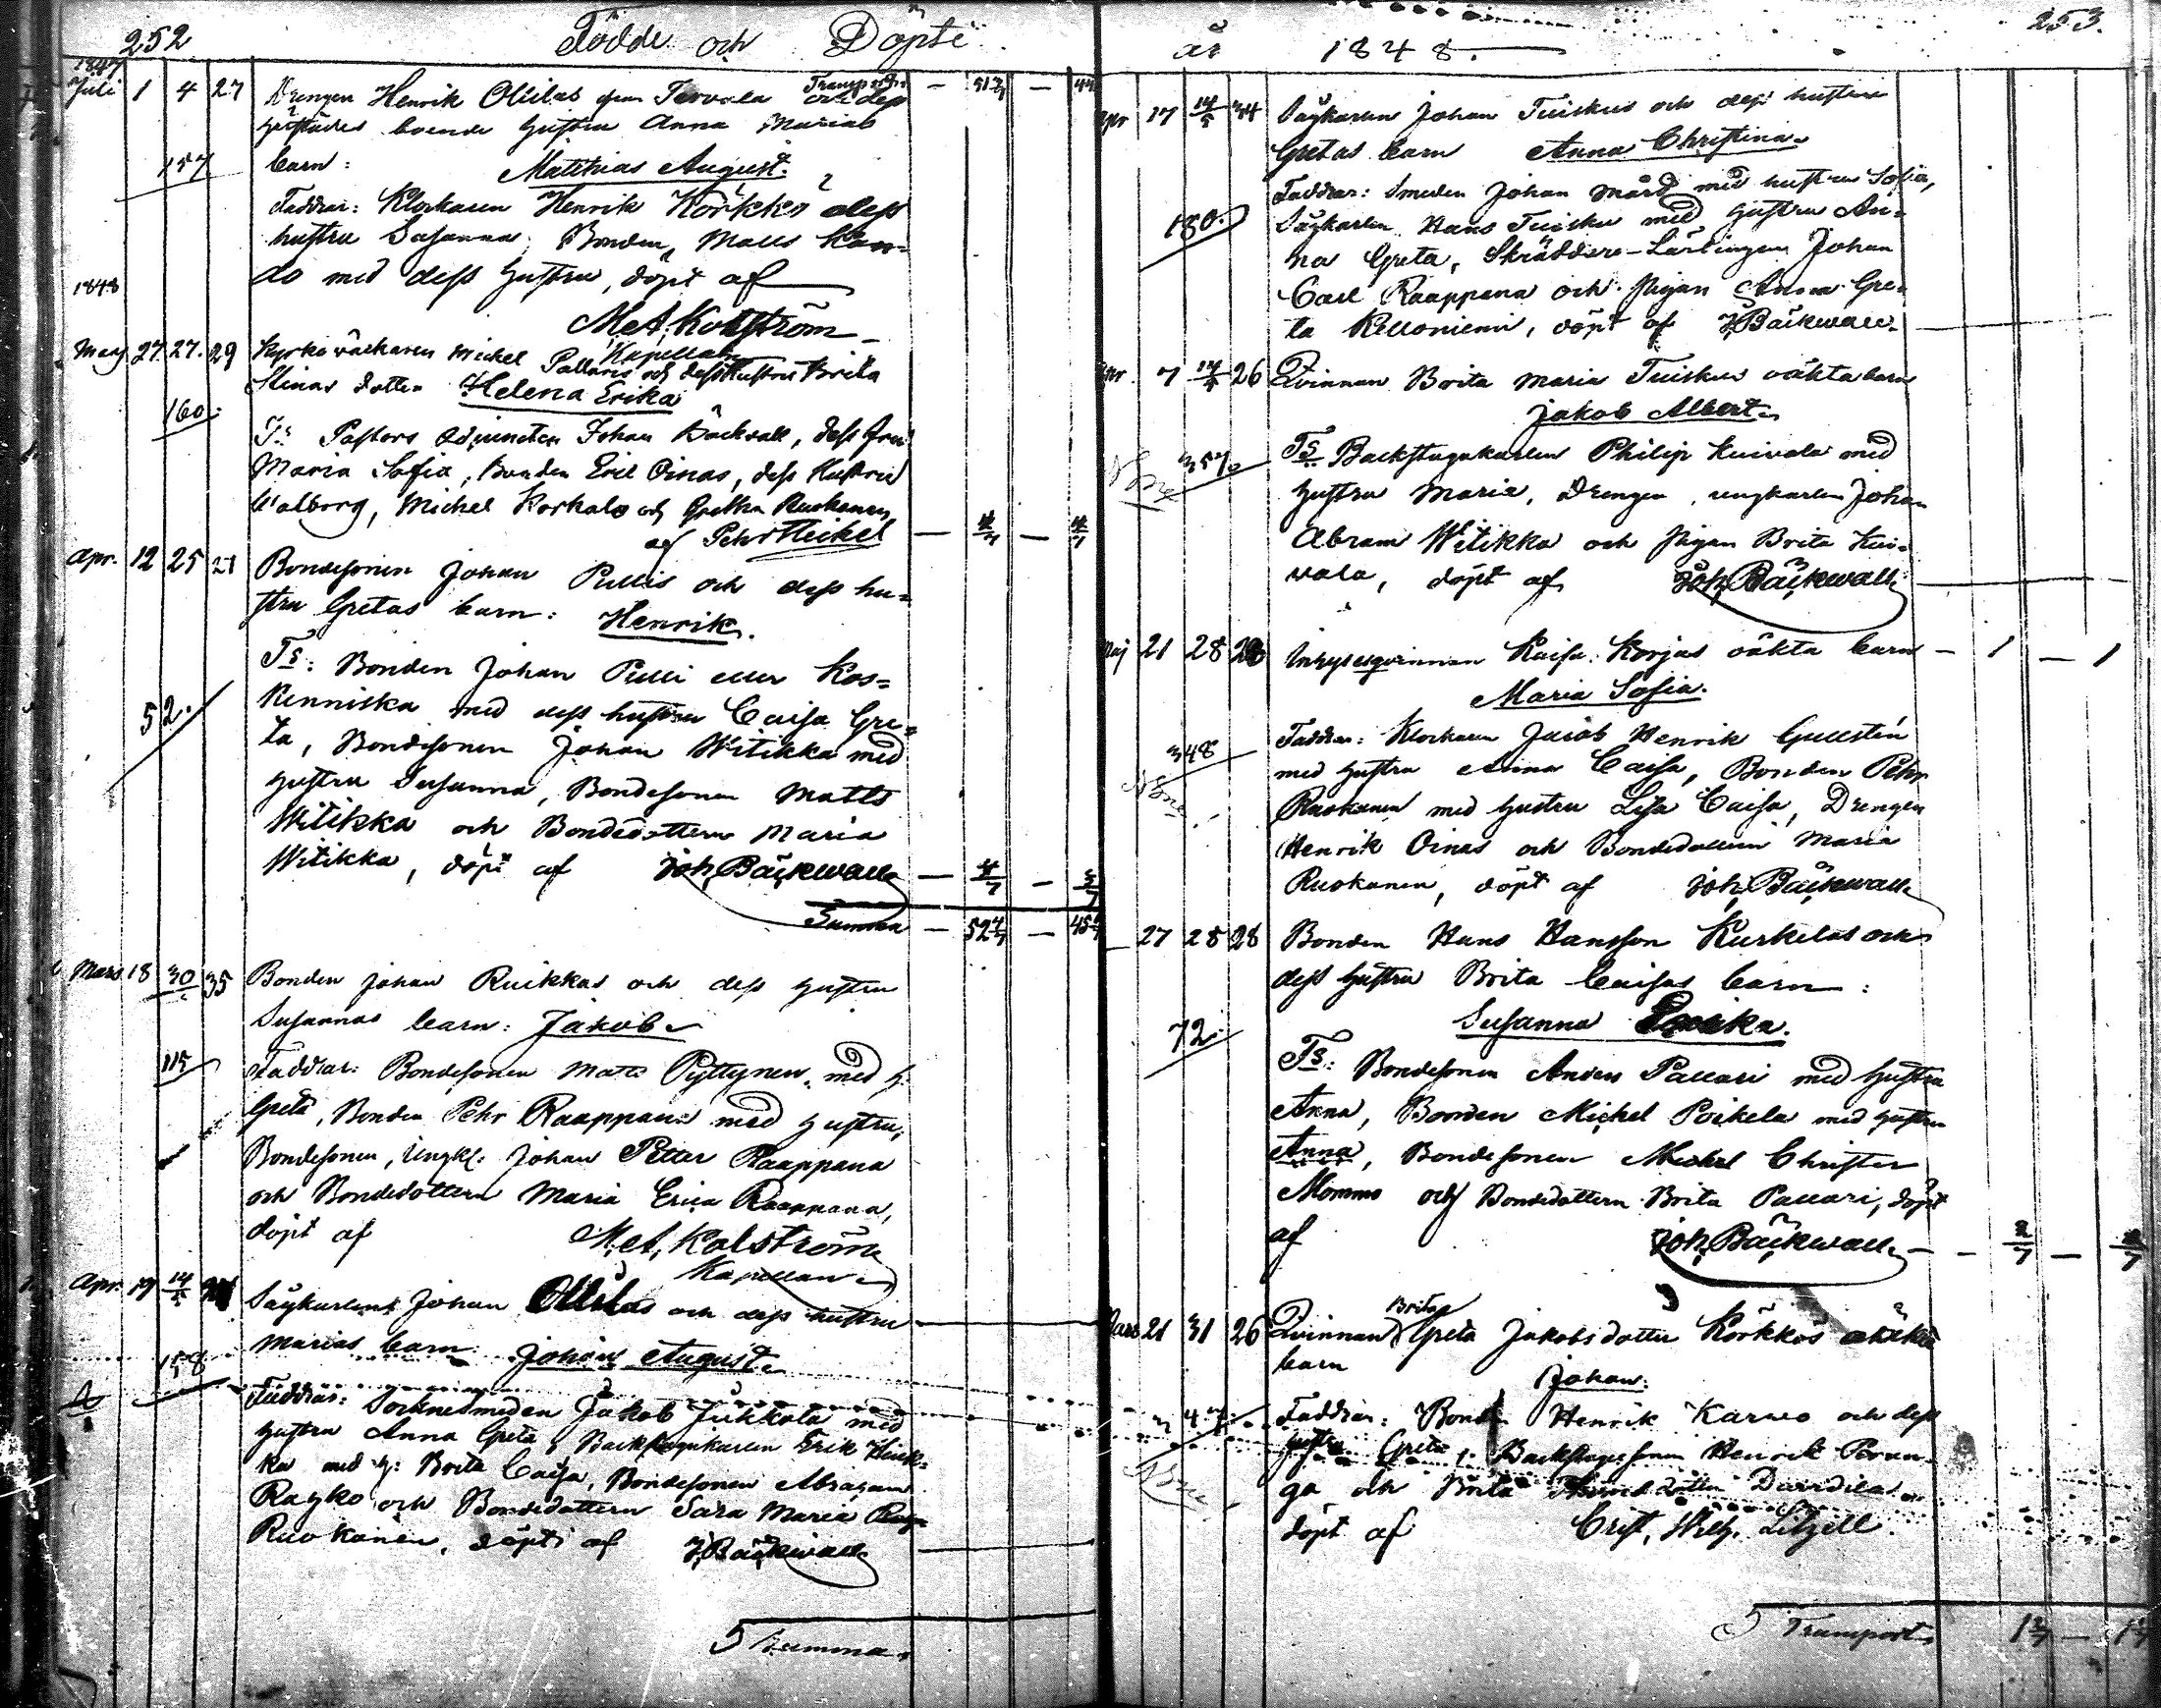 252
Födde och Döpte
1847
Juli 1 4 27 Drengen Henrik Ollilas från Tervola och dess
Transport — 51 3/7 — 44
härstädes boende hustru Anna Marias
157 barn: Matthias August.
Faddrar: Klockaren Henrik Körkkö dess
hustru Susanna, Bonden Matts
do med dess hustru, döpt af
M. A. Kolström
Kapellan
1848
Mars 27. 27. 29 Kyrkoväktaren Michel Pallaris och dess Hustru Brita
Stinas dotter Helena Erika
160.
Fs Pastors Adjuncten Johan Bäckvall, dess Fru
Maria Sofia, Bonden Eric Oinas, dess Hustru
Walborg, Michel Korkalo och Gretha Ruokanen
af Pehr Heikel — 4/7 — 4/7
Apr. 12 25 21 Bondesonen Johan Pullis och dess hu=
stru Gretas barn: Henrik.
Fs: Bonden Johan Pulli eller Kos=
52. kenniska med dess hustru Caisa Gre=
ta, Bondesonen Johan Witikka med
hustru Susanna, Bondesonen Matts
Witikka och Bondedottern Maria
Witikka, döpt af Joh. Bäckwall — 4/7 — 3/7
Summa — 52 4/7 — 45
Mars 18 30 35 Bonden Johan Ruikkas och dess hustru
Susannas barn: Jakob
115
Faddrar: Bondesonen Matts Pyttynen med h:
Greta, Bonden Pehr Raappana med hustru,
Bondesonen, Ungk: Johan Petter Raappana
och Bondedottern Maria Erica Raappana,
döpt af M. A. Kolström
Kapellan
Apr. 19 14/5 Sågkarlens Johan Ollilas och dess hustru
Marias barn: Johan August.
158
Faddrar: Socknesmeden Jakob Jukkola med
hustru Anna Greta, Backstugukarlen Erik Heik=
ka med h: Brita Caisa, Bondesonen Abraham
Rayko och Bondedottern Sara Maria
Ruokanen, döpt af J. Bäckwall
5 Summa.
år 1848.
253.
Apr 17 14/5 44 Sågkarlen Johan Tuiskus och dess hustru
Gretas barn Anna Christina.
Faddrar: Smeden Johan Mård med hustru Sofia,
180. Sågkarlen Hans Tuisku med hustru An=
na Greta, Skräddare-Lärlingen Johan
Carl Raappana och Pigan Anna Gre=
ta Kelloniemi, döpt af J. Bäckwall.
Apr. 7 14/5 26 Qvinnan Brita Maria Tuiskus oäkta barn
Jakob Albert.
357. Fs. Backstugukarlen Philip Kuivala med
hustru Maria, Drengen, ungkarlen Johan
Abram Witikka och Pigan Brita Kui=
vala, döpt af Joh. Bäckwall
Maj 21 28 28 Inhysesqvinnan Kaisa Korjas oäkta barn — 1 — 1
Maria Sofia.
348 Faddrar: Klockaren Jacob Henrik Gullstén
med hustru Anna Caisa, Bonden Pehr
Ruokanen med hustru Lisa Caisa, Drengen
Henrik Oinas och Bondedottern Maria
Ruokanen, döpt af Joh. Bäckwall
27 28 28 Bonden Hans Hansson Kurkelas och
dess hustru Brita Caisas barn:
Susanna
72.
Fs: Bondesonen Anders Pallari med hustru
Anna, Bonden Michel Poikela med hustru
Anna, Bondesonen Michel Christer
Mommo och Bondedottern Brita Pallari, döpt
af Joh. Bäckwall — 2/7 — 2/7
Mars 21 31 26 Qvinnans Brita Greta Jakobsdotter Körkkös oäkta
barn
Johan.
Faddrar: Bonden Henrik Karwo och dess
hustru Greta, Backstugusonen Henrik Perun=
ga och Brita Davidila
döpt af Crist. Wilh. Litzell
5 Transport 1 2/7 — 1 2/7